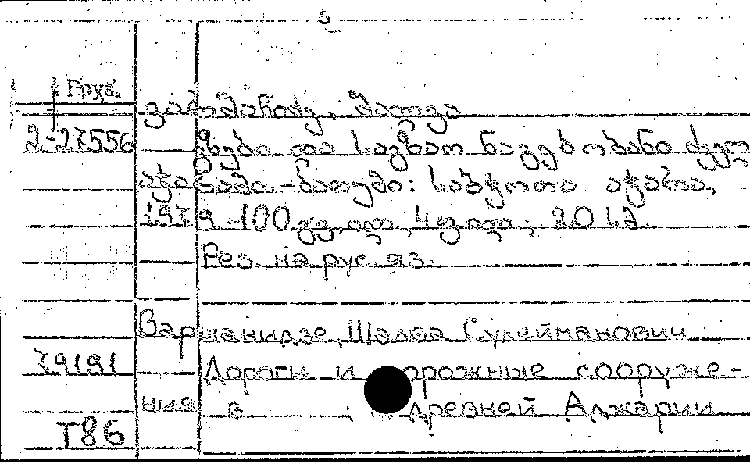 Груз.
2-27556
გზები და საგზაო ნაგებობანი ძველ
აჭარაში. -ბათუმი: საბჭოთა აჭარა,
1979. -100 გვ., 20 სმ
Рез. на рус. яз.
Варшанидзе, Шалва Сулейманович
79191 Дороги и дорожные сооруже-
ния в древней Аджарии
Т86